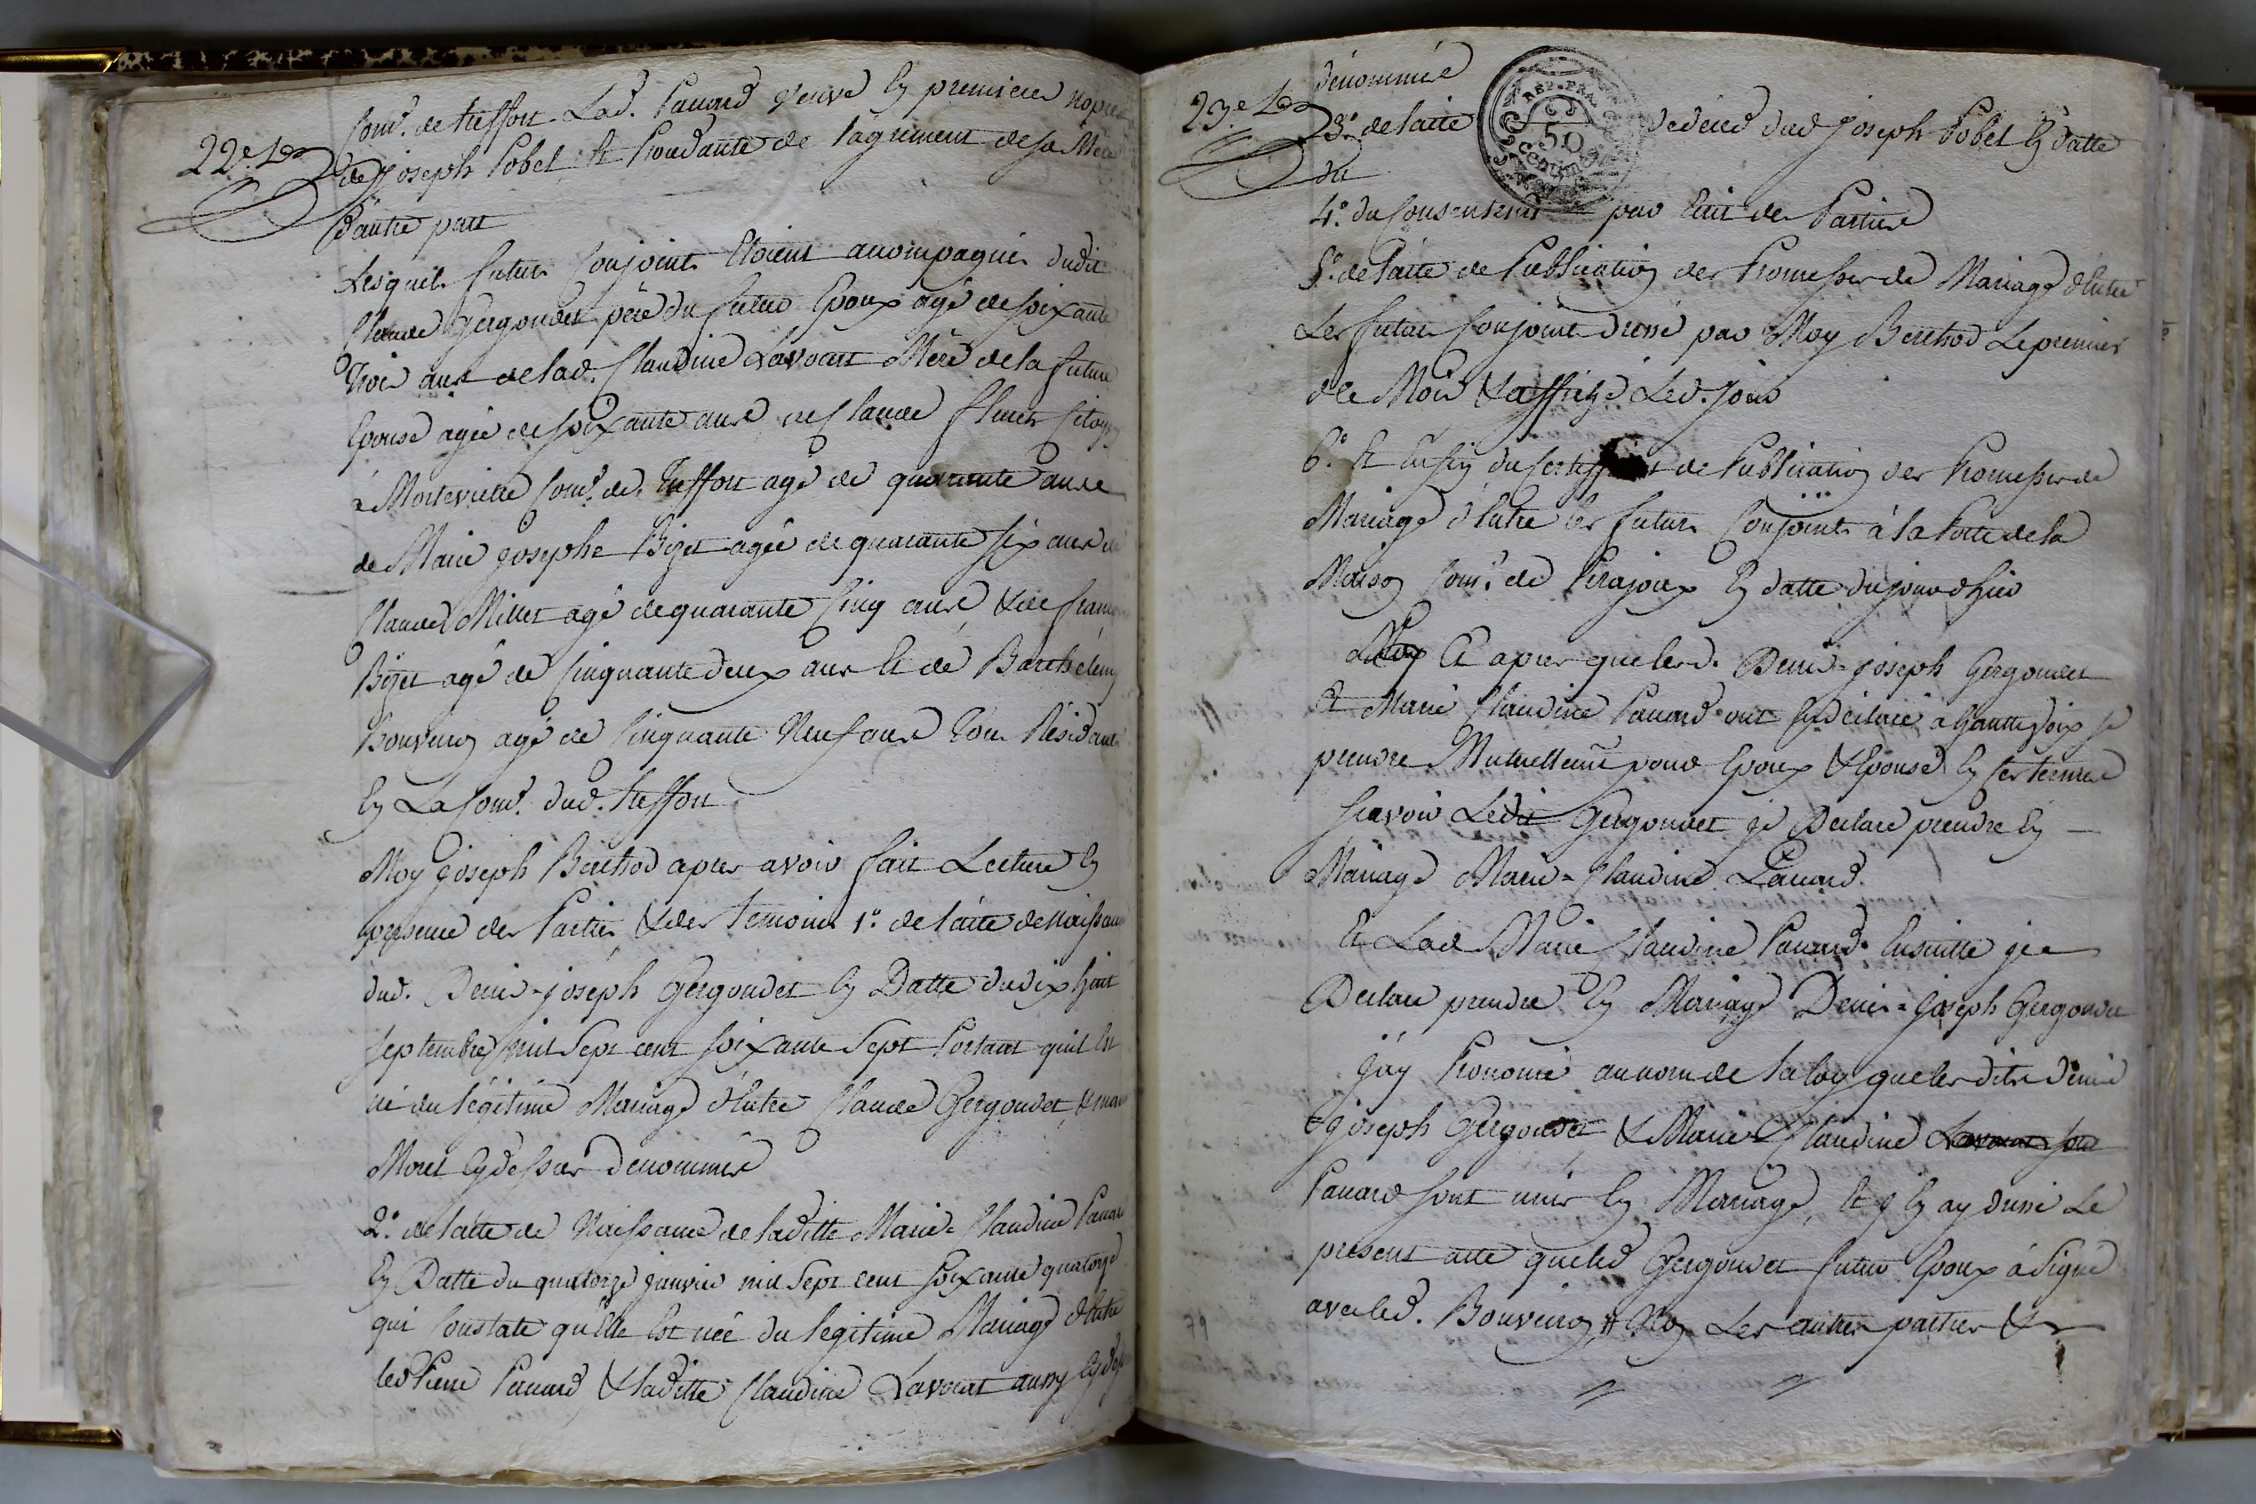 22e. Lo
Com.e de treffort. Lad. Pauard veuve En premieres nopces
de Joseph Pobel, Et Procedante de l'agrement de sa Mere
D'autre part
Lesquels futurs Conjoints Etoient accompagnés dudit
Claude Gergondet père du futur Epoux agé de soixante
trois ans de lad. Claudine Lavocat Mère de la future
Epouse agée de soixante ans, de Claude citoyen
à Montevielle Com.e de Treffort agé de quarante ans
de Marie josephe Bizet agée de quarante six ans de
Claude Millet agé de quarante Cinq ans, & de
Bizet agé de Cinquante deux ans Et de Barthélemy
Bouveiron agé de Cinquante Neuf ans tous Résidants
En La Com.e dud. treffort
Moy joseph Berthod apres avoir fait Lecture En
presence des Parties & des temoins 1.o de l'acte de Naissance
dud. Denis-joseph Gergondet En Datte du dix huit
septembre mil Sept cent soixante Sept Portant quil Est
né du légitime Mariage d'Entre Claude Gergondet &
Moret Cy dessus denommés
2.o de l'acte de Naissance de laditte Marie-Claudine Pauard
En Datte du quatorze janvier mil Sept cent soixante quatorze
qui Constate qu'Elle Est née du légitime Mariage d'Entre
led Pierre Pauard & laditte Claudine Lavocat aussy Cy dessus
23.e Lo
dénommé
3.o de l'acte de déces dud Joseph Pobel En datte
du
4.o du Consentement par Ecrit des Parties
5.o de l'acte de Publication des Promesses de Mariage d'Entre
Les futurs Conjoints dressé par Moy Berthod Le premier
de Mois & affiché Led. jour
6.o Et Enfin du Certifficat de Publication des Promesses de
Mariage d'Entre les futurs Conjoints à la Porte de la
Maison Com.e de Pirajoux En datte du jour d'hier
Et apres que lesd. Denis-joseph Gergondet
Et Marie Claudine Pauard ont Eu déclaré à hautte voix se
prendre Mutuellement pour Epoux & Epouse En ces termes
sçavoir Ledit Gergondet je Declare prendre En
Mariage Marie-Claudine Pauard.
Et Lad Marie Claudine Pauard Ensuitte je
Declare prendre En Mariage Denis-Joseph Gergondet
J'ay Prononcé au nom de la loy que lesdits Denis
joseph Gergondet & Marie Claudine Lavocat sont
Pauard sont unis En Mariage, Et j'En ay dressé Le
présent acte que led Gergondet futur Epoux à Signé
avec led. Bouveiron & Moy Les autres parties &
REP. FRA.
50
CENTIM